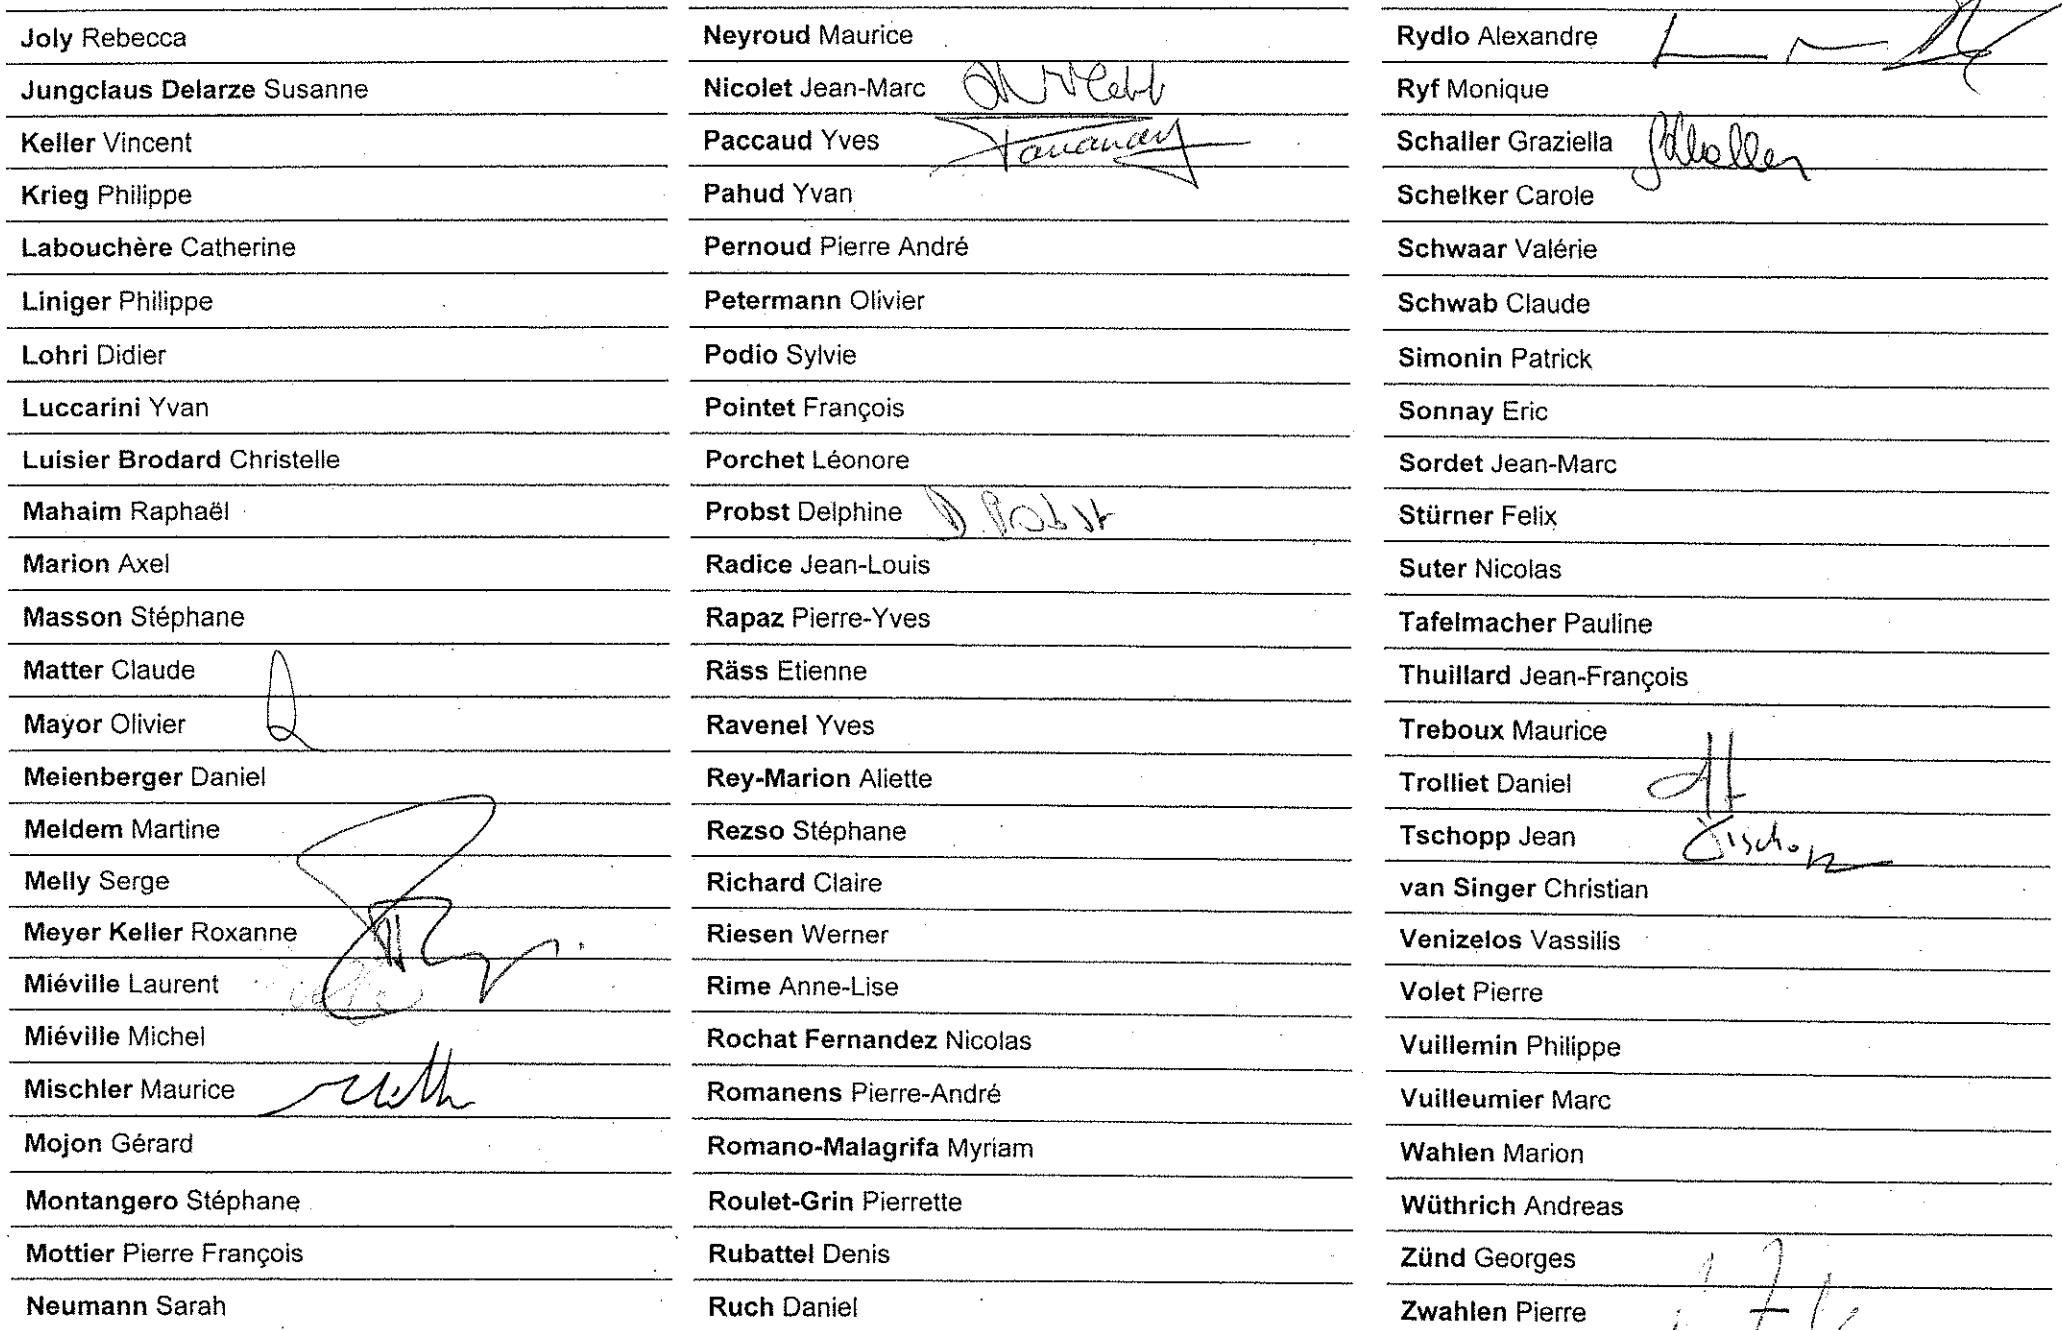 Joly Rebecca
Jungclaus Delarze Susanne
Keller Vincent
Krieg Philippe
Labouchère Catherine
Liniger Philippe
Lohri Didier
Luccarini Yvan
Luisier Brodard Christelle
Mahaim Raphaël
Marion Axel
Masson Stéphane
Matter Claude
Mayor Olivier
Meienberger Daniel
Meldem Martine
Melly Serge
Meyer Keller Roxanne
Miéville Laurent
Miéville Michel
Mischler Maurice
Mojon Gérard
Montangero Stéphane
Mottier Pierre François
Neumann Sarah
Neyroud Maurice
Nicolet Jean-Marc
Paccaud Yves
Pahud Yvan
Pernoud Pierre André
Petermann Olivier
Podio Sylvie
Pointet François
Porchet Léonore
Probst Delphine D. Probst
Radice Jean-Louis
Rapaz Pierre-Yves
Räss Etienne
Ravenel Yves
Rey-Marion Aliette
Rezso Stéphane
Richard Claire
Riesen Werner
Rime Anne-Lise
Rochat Fernandez Nicolas
Romanens Pierre-André
Romano-Malagrifa Myriam
Roulet-Grin Pierrette
Rubattel Denis
Ruch Daniel
Rydlo Alexandre
Ryf Monique
Schaller Graziella
Schelker Carole
Schwaar Valérie
Schwab Claude
Simonin Patrick
Sonnay Eric
Sordet Jean-Marc
Stürner Felix
Suter Nicolas
Tafelmacher Pauline
Thuillard Jean-François
Treboux Maurice
Trolliet Daniel
Tschopp Jean
van Singer Christian
Venizelos Vassilis
Volet Pierre
Vuillemin Philippe
Vuilleumier Marc
Wahlen Marion
Wüthrich Andreas
Zünd Georges
Zwahlen Pierre